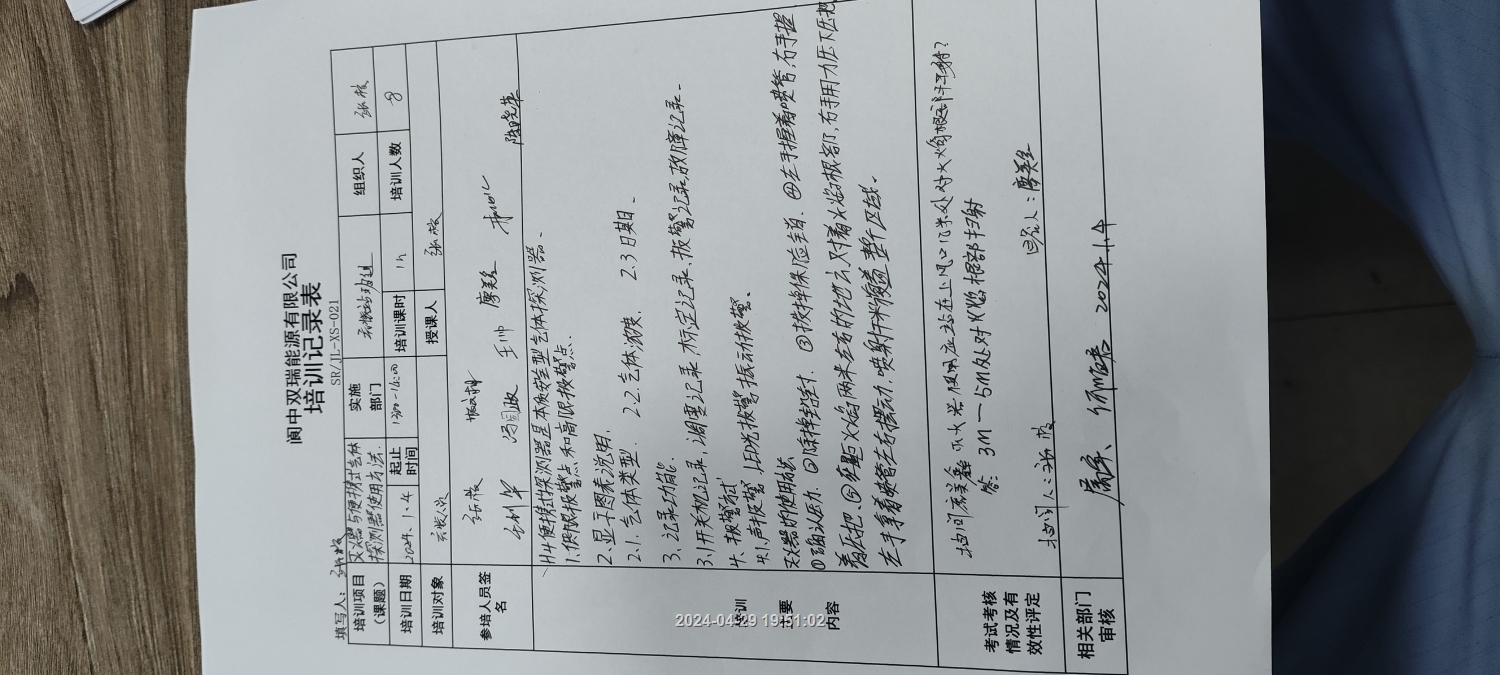 阆中双瑞能源有限公司
培训记录表
SR/JL-XS-021
填写人：
培训项目（课题） 灭火器与便携式气体探测器使用方法. 实施部门 组织人
培训日期 2024.1.4 起止时间 培训课时 1h 培训人数 8
培训对象 授课人
参培人员签名
王帅 廖美全
冯国政 陈晓华
H4便携式探测器是本质安全型气体探测器.
1.低限报警点和高限报警点.
2.显示图表说明.
2.1.气体类型. 2.2气体浓度. 2.3日期.
3.记录功能.
3.1开关机记录,调零记录,标定记录,报警记录,故障记录.
4.报警方式
4.1.声报警 LED光报警 振动报警.
灭火器的使用方法
①确认压力. ②除掉铅封. ③拔掉保险销. ④左手握着喷管,右手提
着压把. ⑤在距火焰两米左右的地方对着火焰根部,右手用力压下压把
左手拿着喷管左右摆动,喷射干粉覆盖整个区域.
培训主要内容
抽问廖美全 灭火器使用应站在上风口几米处对火焰根部扫射?
答: 3M—5M处对火焰根部扫射
抽问人: 回答人: 廖美全
考试考核情况及有效性评定
相关部门审核 2024.1.4
2024-04-29 19:51:02